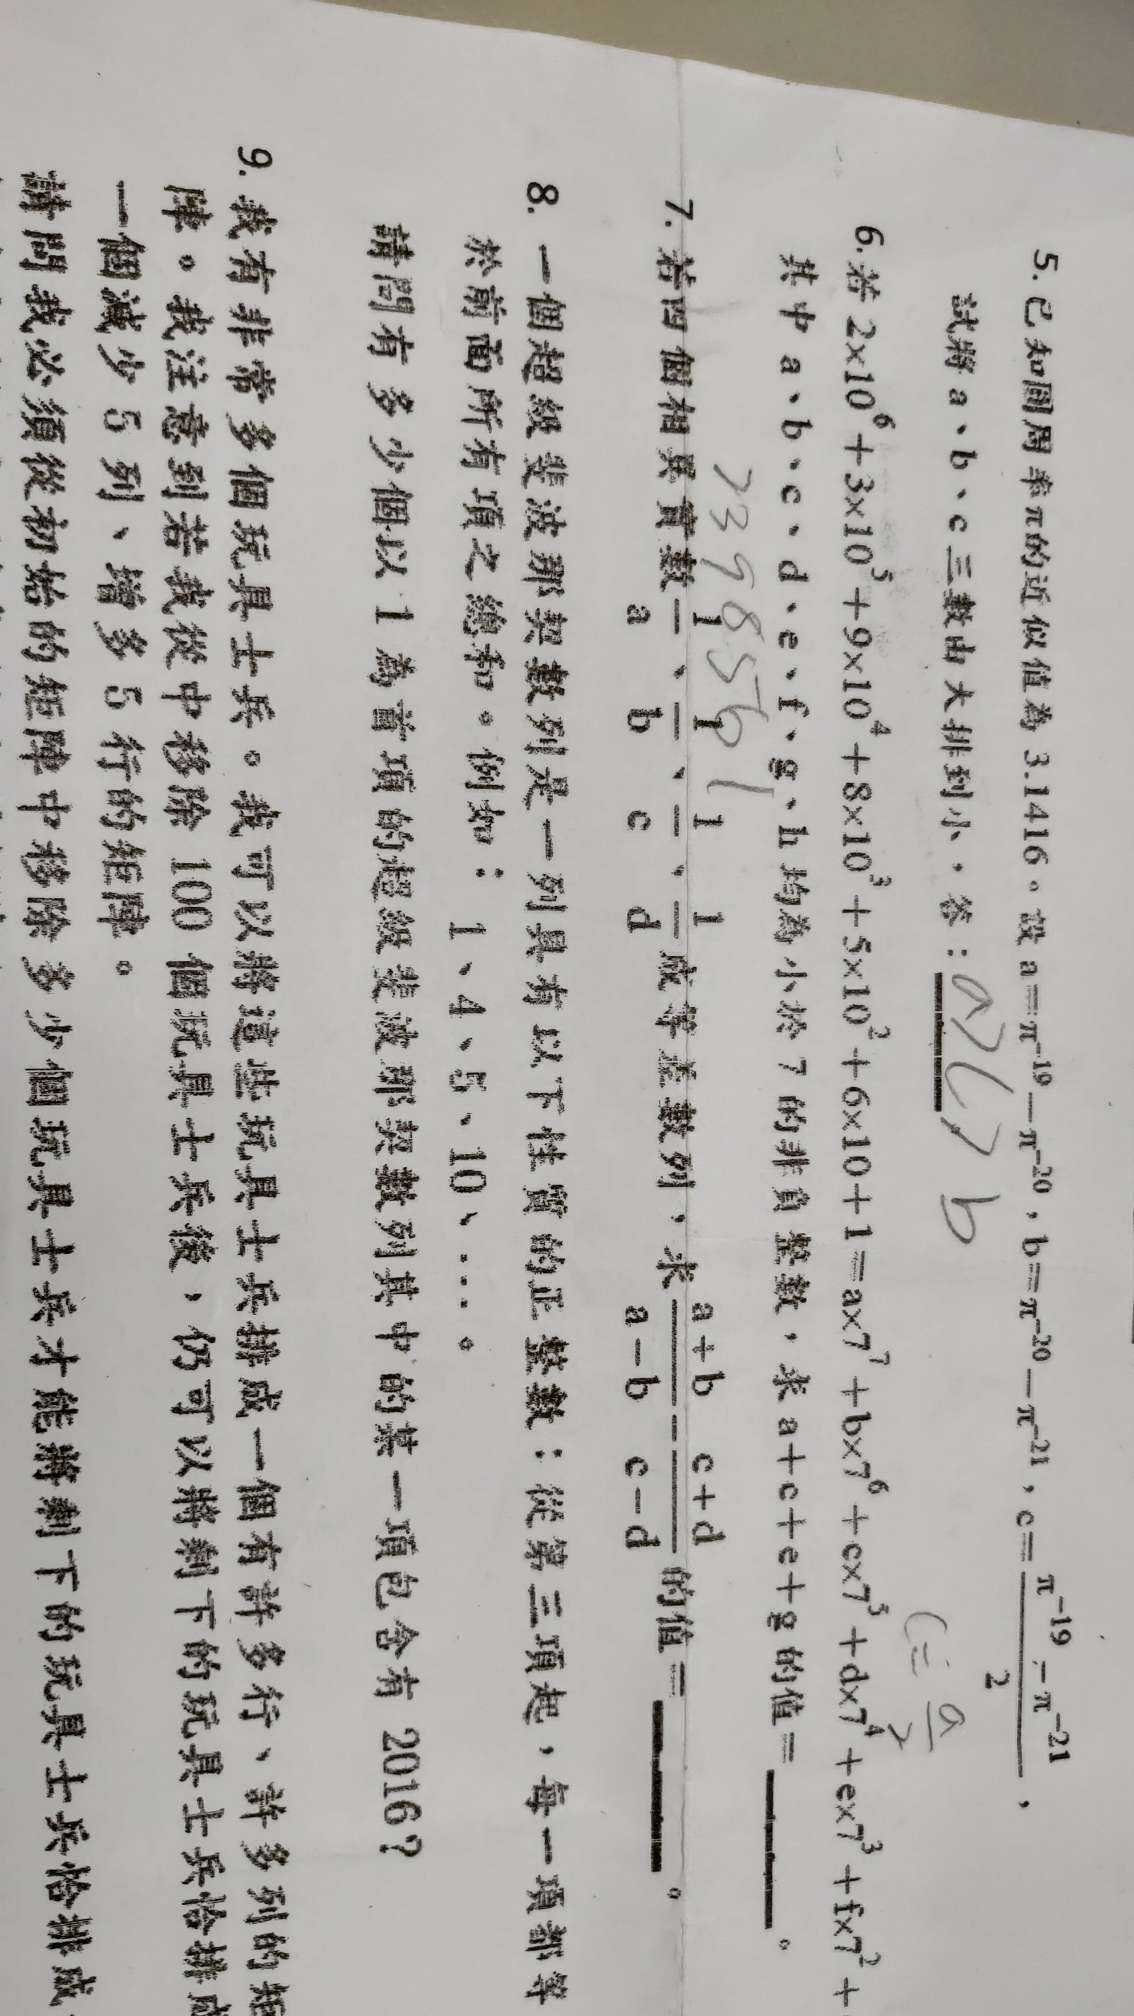 5. 已知圓周率π的近似值為 3.1416。設 a=π⁻¹⁹-π⁻²⁰，b=π⁻²⁰-π⁻²¹，c=(π⁻¹⁹-π⁻²¹)/2，
試將 a、b、c 三數由大排到小，答：a>c>b
c= a/2
6. 若 2×10⁶+3×10⁵+9×10⁴+8×10³+5×10²+6×10+1=a×7⁷+b×7⁶+c×7⁵+d×7⁴+e×7³+f×7²+
其中 a、b、c、d、e、f、g、h 均為小於 7 的非負整數，求 a+c+e+g 的值=____。
2398561
7. 若四個相異實數 1/a、1/b、1/c、1/d 成等差數列，求 (a+b)/(a-b) - (c+d)/(c-d) 的值=____。
8. 一個超級斐波那契數列是一列具有以下性質的正整數：從第三項起，每一項都等
於前面所有項之總和。例如：1、4、5、10、…。
請問有多少個以 1 為首項的超級斐波那契數列其中的某一項包含有 2016？
9. 我有非常多個玩具士兵。我可以將這些玩具士兵排成一個有許多行、許多列的矩
陣。我注意到若我從中移除 100 個玩具士兵後，仍可以將剩下的玩具士兵恰排成
一個減少 5 列、增多 5 行的矩陣。
請問我必須從初始的矩陣中移除多少個玩具士兵才能將剩下的玩具士兵恰排成